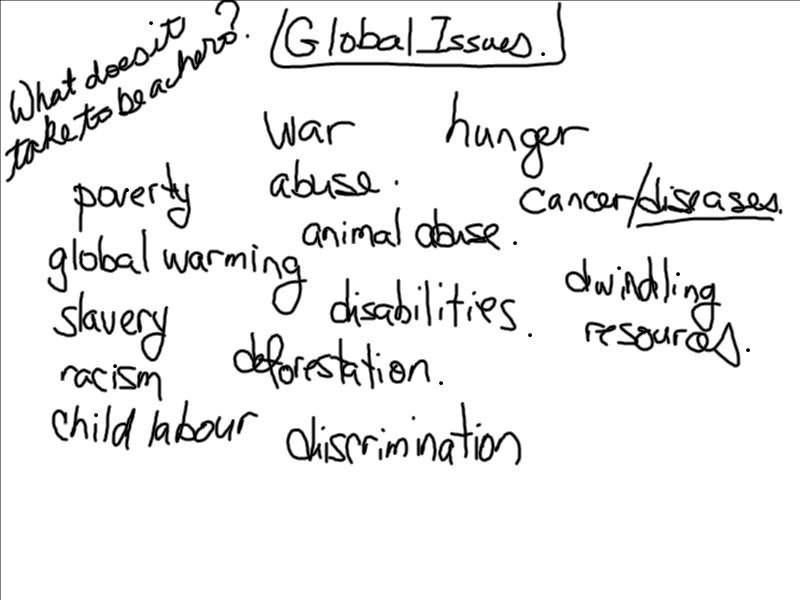 What does it
take to be a hero?
Global Issues.
war
hunger
poverty
abuse.
cancer/diseases.
animal abuse.
global warming
dwindling
resources.
slavery
disabilities.
racism
deforestation.
child labour
discrimination